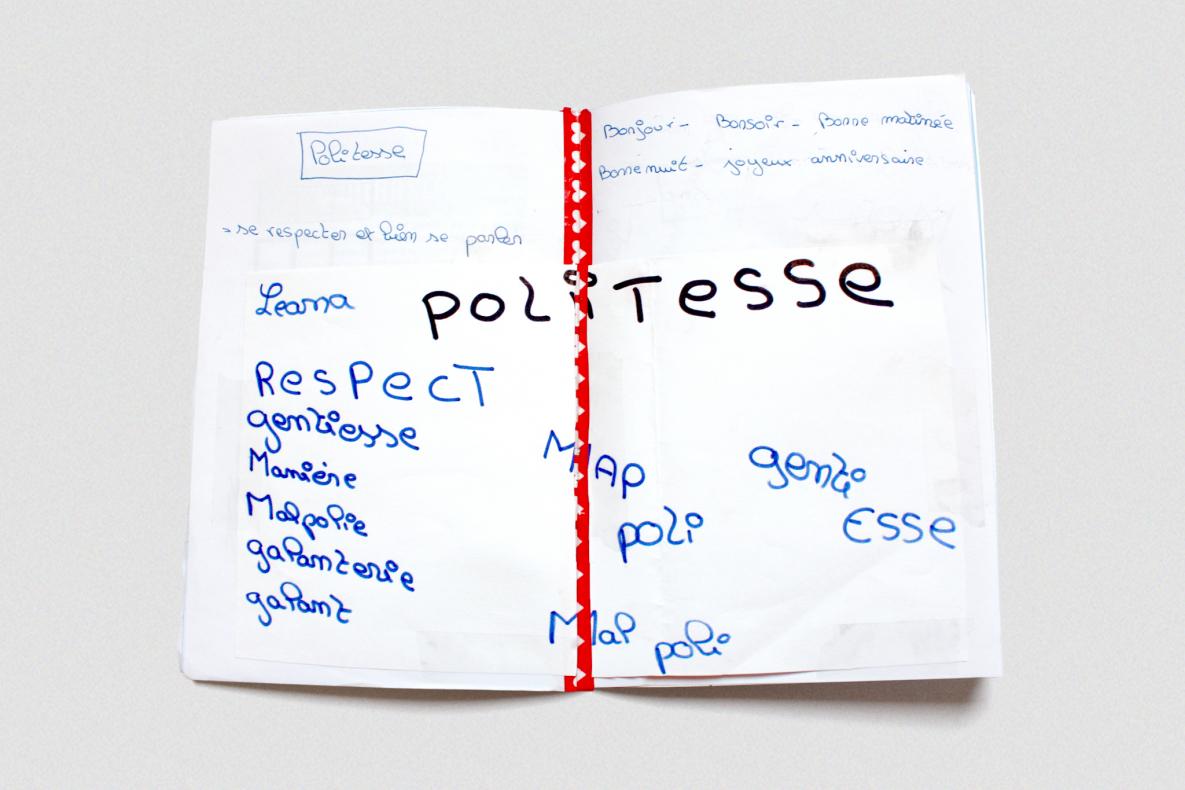 Politesse
→ se respecter et bien se parler
Bonjour - Bonsoir - Bonne matinée
Bonne nuit - joyeux anniversaire
Leana
POLiTesse
ResPecT
gentiesse
Manière
Malpolie
galanterie
galant
MAp
poli
genti
Esse
Mal poli